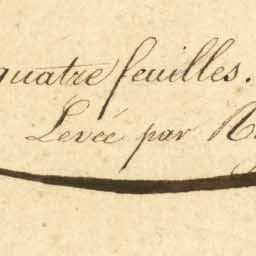 quatre feuilles.
Levée par